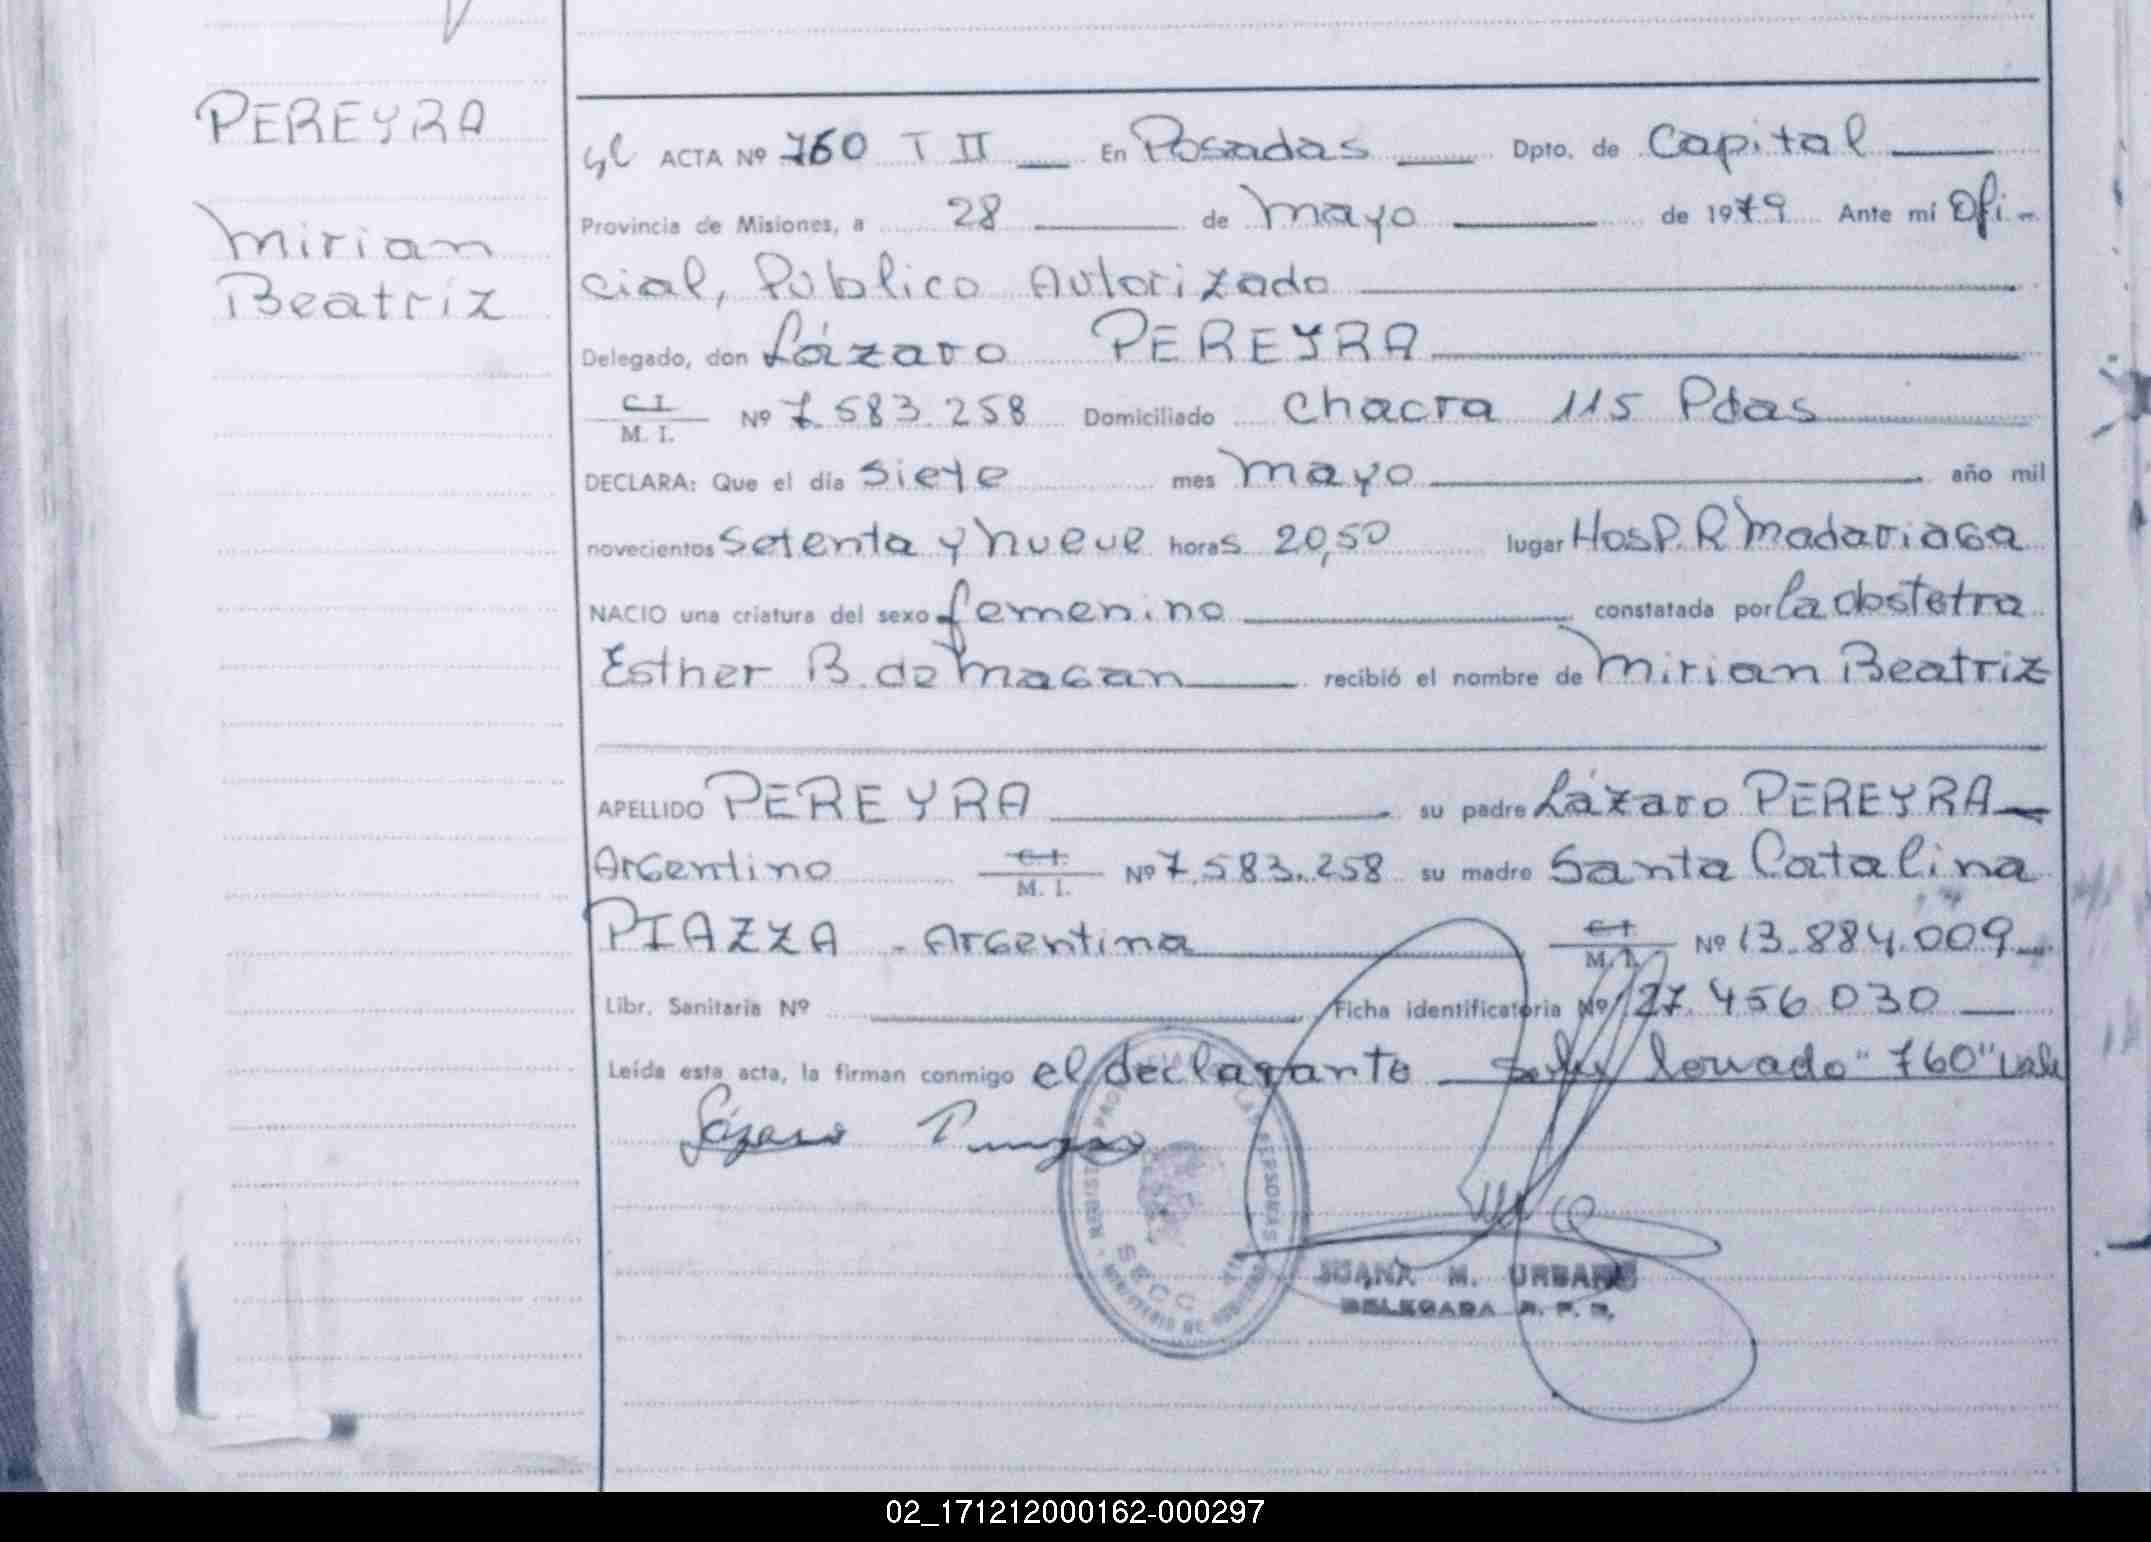 PEREYRA
Mirian
Beatriz
ACTA Nº 760 T II En Posadas Dpto. de Capital
Provincia de Misiones, a 28 de mayo de 1979 Ante mí Ofi-
cial, Publico Autorizado
Delegado, don Lázaro PEREYRA
C.I.
M. I. Nº 7.583.258 Domiciliado Chacra 115 Pdas
DECLARA: Que el día siete mes mayo año mil
novecientos setenta y nueve horas 20,50 lugar Hosp. R Madariaga
NACIO una criatura del sexo femenino constatada por la obstetra
Esther B. de Magan recibió el nombre de Mirian Beatriz
APELLIDO PEREYRA su padre Lázaro PEREYRA
Argentino C.I.
M. I. Nº 7.583.258 su madre Santa Catalina
PIAZZA - Argentina C.I.
M. I. Nº 13.884.009
Libr. Sanitaria Nº Ficha identificatoria Nº 27.456.030
Leída esta acta, la firman conmigo el declarante "760" vale
Lázaro
SECC
JUANA M. URBANO
DELEGADA R. P. P.
02_171212000162-000297